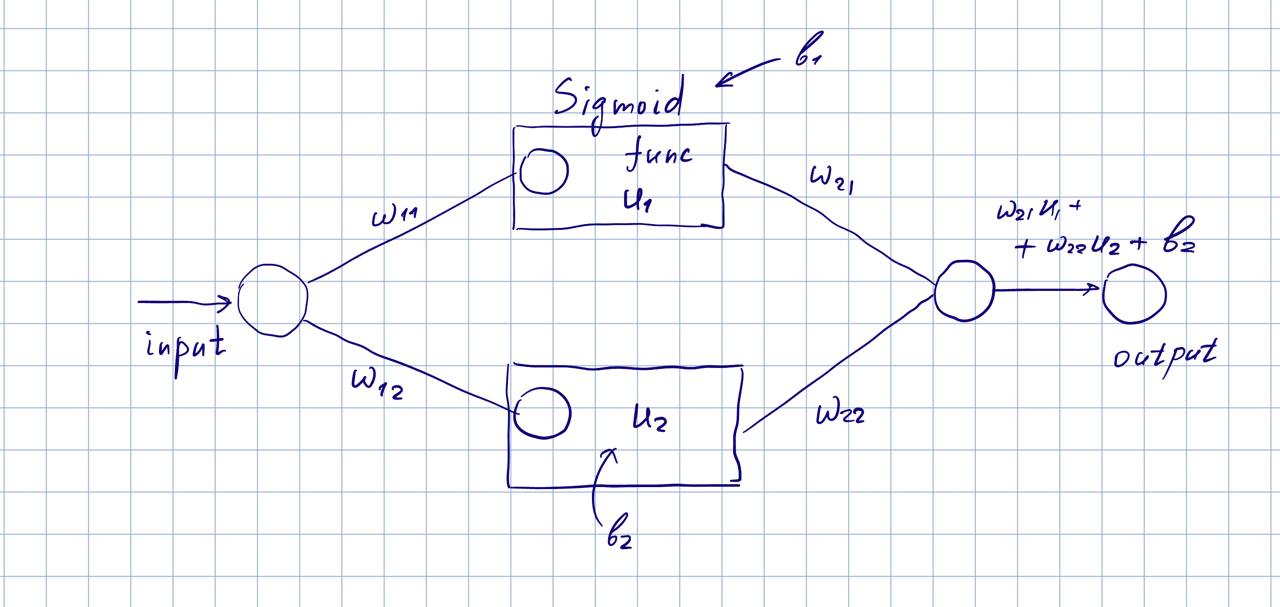 b₁
Sigmoid
func
u₁
w₁₁
w₂₁
w₂₁u₁ +
+ w₂₂u₂ + b₂
input
output
w₁₂
u₂
w₂₂
b₂